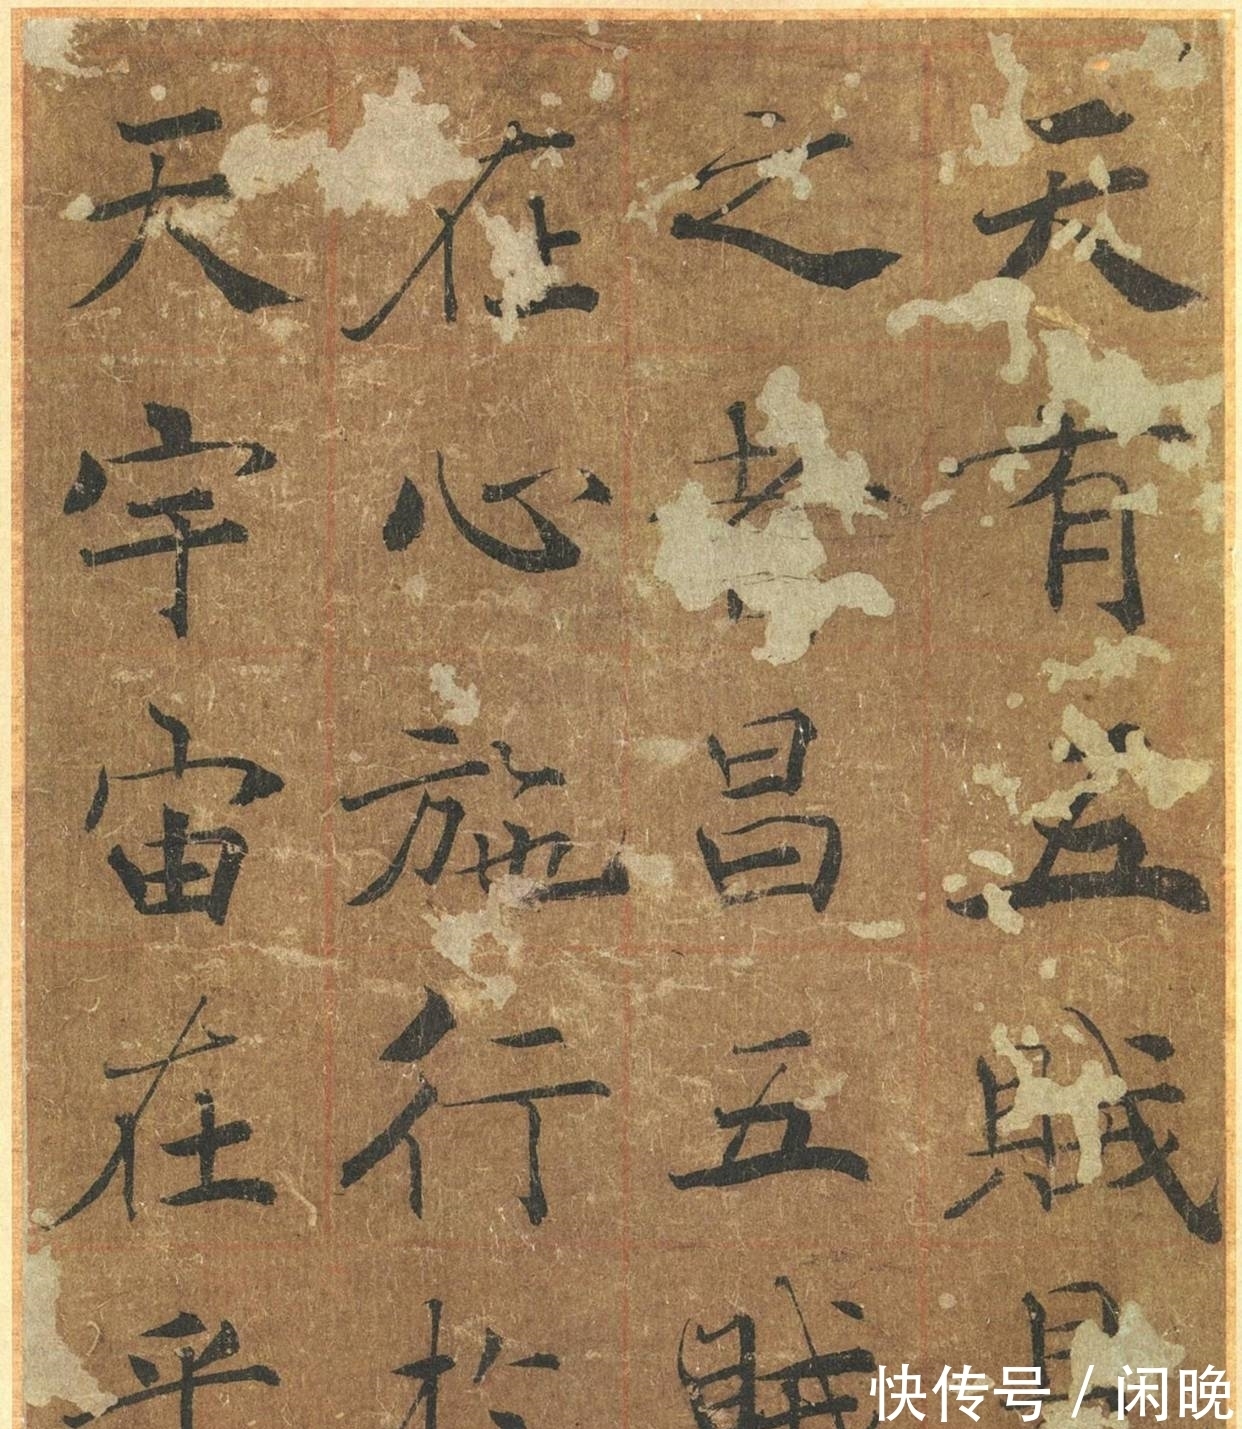 天有五賊見
之者昌五賊
在心施行扵
天宇宙在乎
快传号 / 闲晚